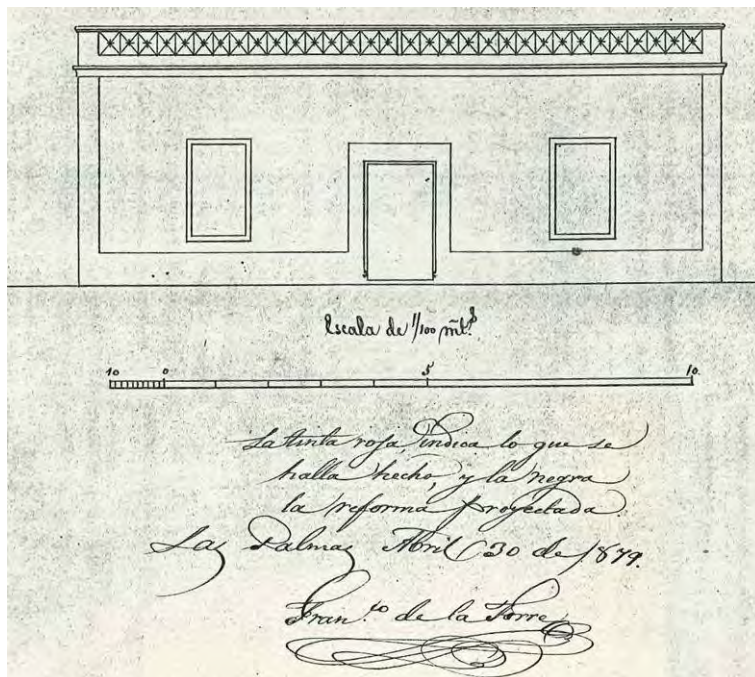 Escala de 1/100 mt.s
10 0 5 10.
La tinta roja, indica lo que se
halla hecho, y la negra
la reforma proyectada.
Las Palmas Abril 30 de 1879.
Fran.co de la Torre